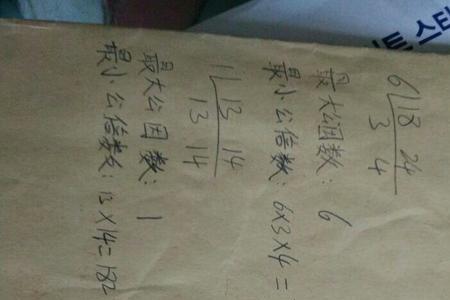 6|18 24
3 4
最大公因数: 6
最小公倍数: 6×3×4=
1|13 14
13 14
最大公因数: 1
最小公倍数: 13×14=182